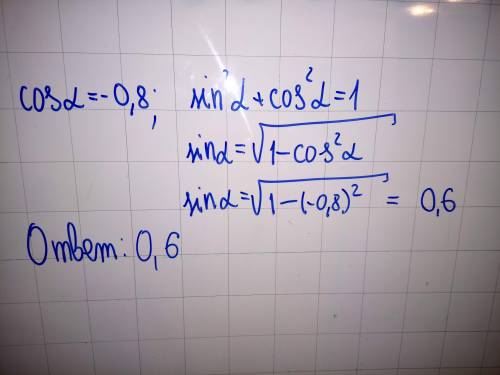 cosα=-0,8; sin²α+cos²α=1
sinα=√1-cos²α
sinα=√1-(-0,8)² = 0,6
Ответ: 0,6